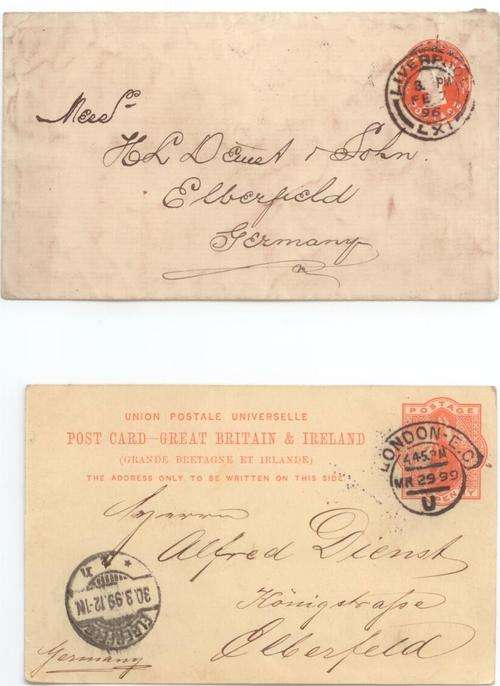 LIVERP
8 PM
FE
96
LXI
Mess rs
H L Dienst & Sohn.
Elberfeld
Germany
UNION POSTALE UNIVERSELLE
POST CARD—GREAT BRITAIN & IRELAND
(GRANDE BRETAGNE ET IRLANDE)
THE ADDRESS ONLY TO BE WRITTEN ON THIS SIDE
POSTAGE
PENNY
LONDON-E.C.
4.45.PM
MR 29 99
U
Herrn
Alfred Dienst
Königstraße
Elberfeld
ELBERFELD
30.3.99.12-1N.
Germany